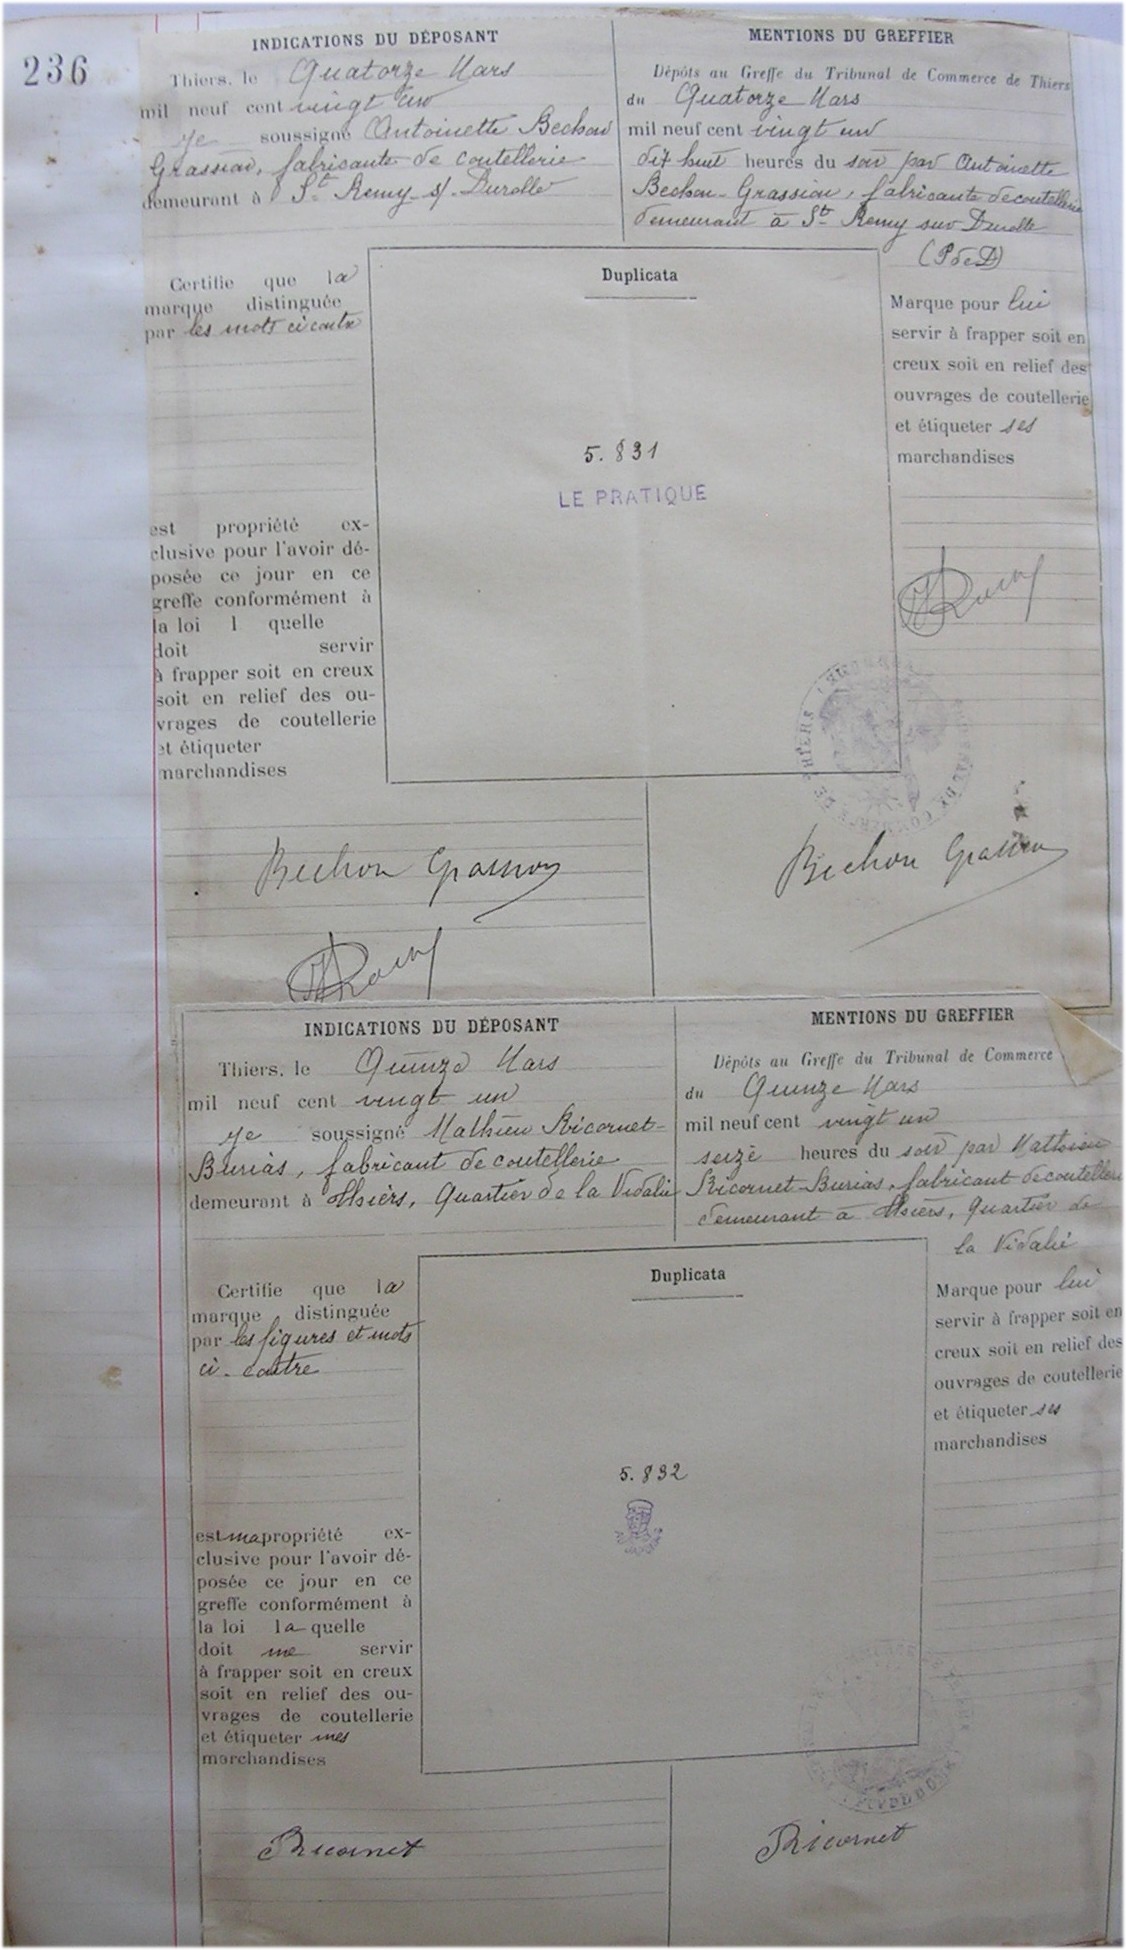 236
INDICATIONS DU DÉPOSANT
Thiers, le Quatorze Mars
mil neuf cent vingt un
Je soussigné Antoinette Bechon
Grassion, fabricante de coutellerie
demeurant à St Remy s/ Durolle
Certifie que la
marque distinguée
par les mots ci contre
est propriété ex-
clusive pour l'avoir dé-
posée ce jour en ce
greffe conformément à
la loi l quelle
doit servir
à frapper soit en creux
soit en relief des ou-
vrages de coutellerie
et étiqueter
marchandises
Duplicata
5.831
LE PRATIQUE
MENTIONS DU GREFFIER
Dépôts au Greffe du Tribunal de Commerce de Thiers
du Quatorze Mars
mil neuf cent vingt un
dix huit heures du soir par Antoinette
Bechon-Grassion, fabricante de coutellerie
demeurant à St Remy sur Durolle
(P de D)
Marque pour lui
servir à frapper soit en
creux soit en relief des
ouvrages de coutellerie
et étiqueter ses
marchandises
Bechon Grassion
Bechon Grassion
INDICATIONS DU DÉPOSANT
Thiers, le Quinze Mars
mil neuf cent vingt un
Je soussigné Mathieu Ricornet-
Burias, fabricant de coutellerie
demeurant à Thiers, Quartier de la Vidalie
Certifie que la
marque distinguée
par les figures et mots
ci-contre
est ma propriété ex-
clusive pour l'avoir dé-
posée ce jour en ce
greffe conformément à
la loi la quelle
doit me servir
à frapper soit en creux
soit en relief des ou-
vrages de coutellerie
et étiqueter mes
marchandises
Duplicata
5.832
MENTIONS DU GREFFIER
Dépôts au Greffe du Tribunal de Commerce
du Quinze Mars
mil neuf cent vingt un
seize heures du soir par Mathieu
Ricornet-Burias, fabricant de coutellerie
demeurant à Thiers, Quartier de
la Vidalie
Marque pour lui
servir à frapper soit en
creux soit en relief des
ouvrages de coutellerie
et étiqueter ses
marchandises
Ricornet
Ricornet